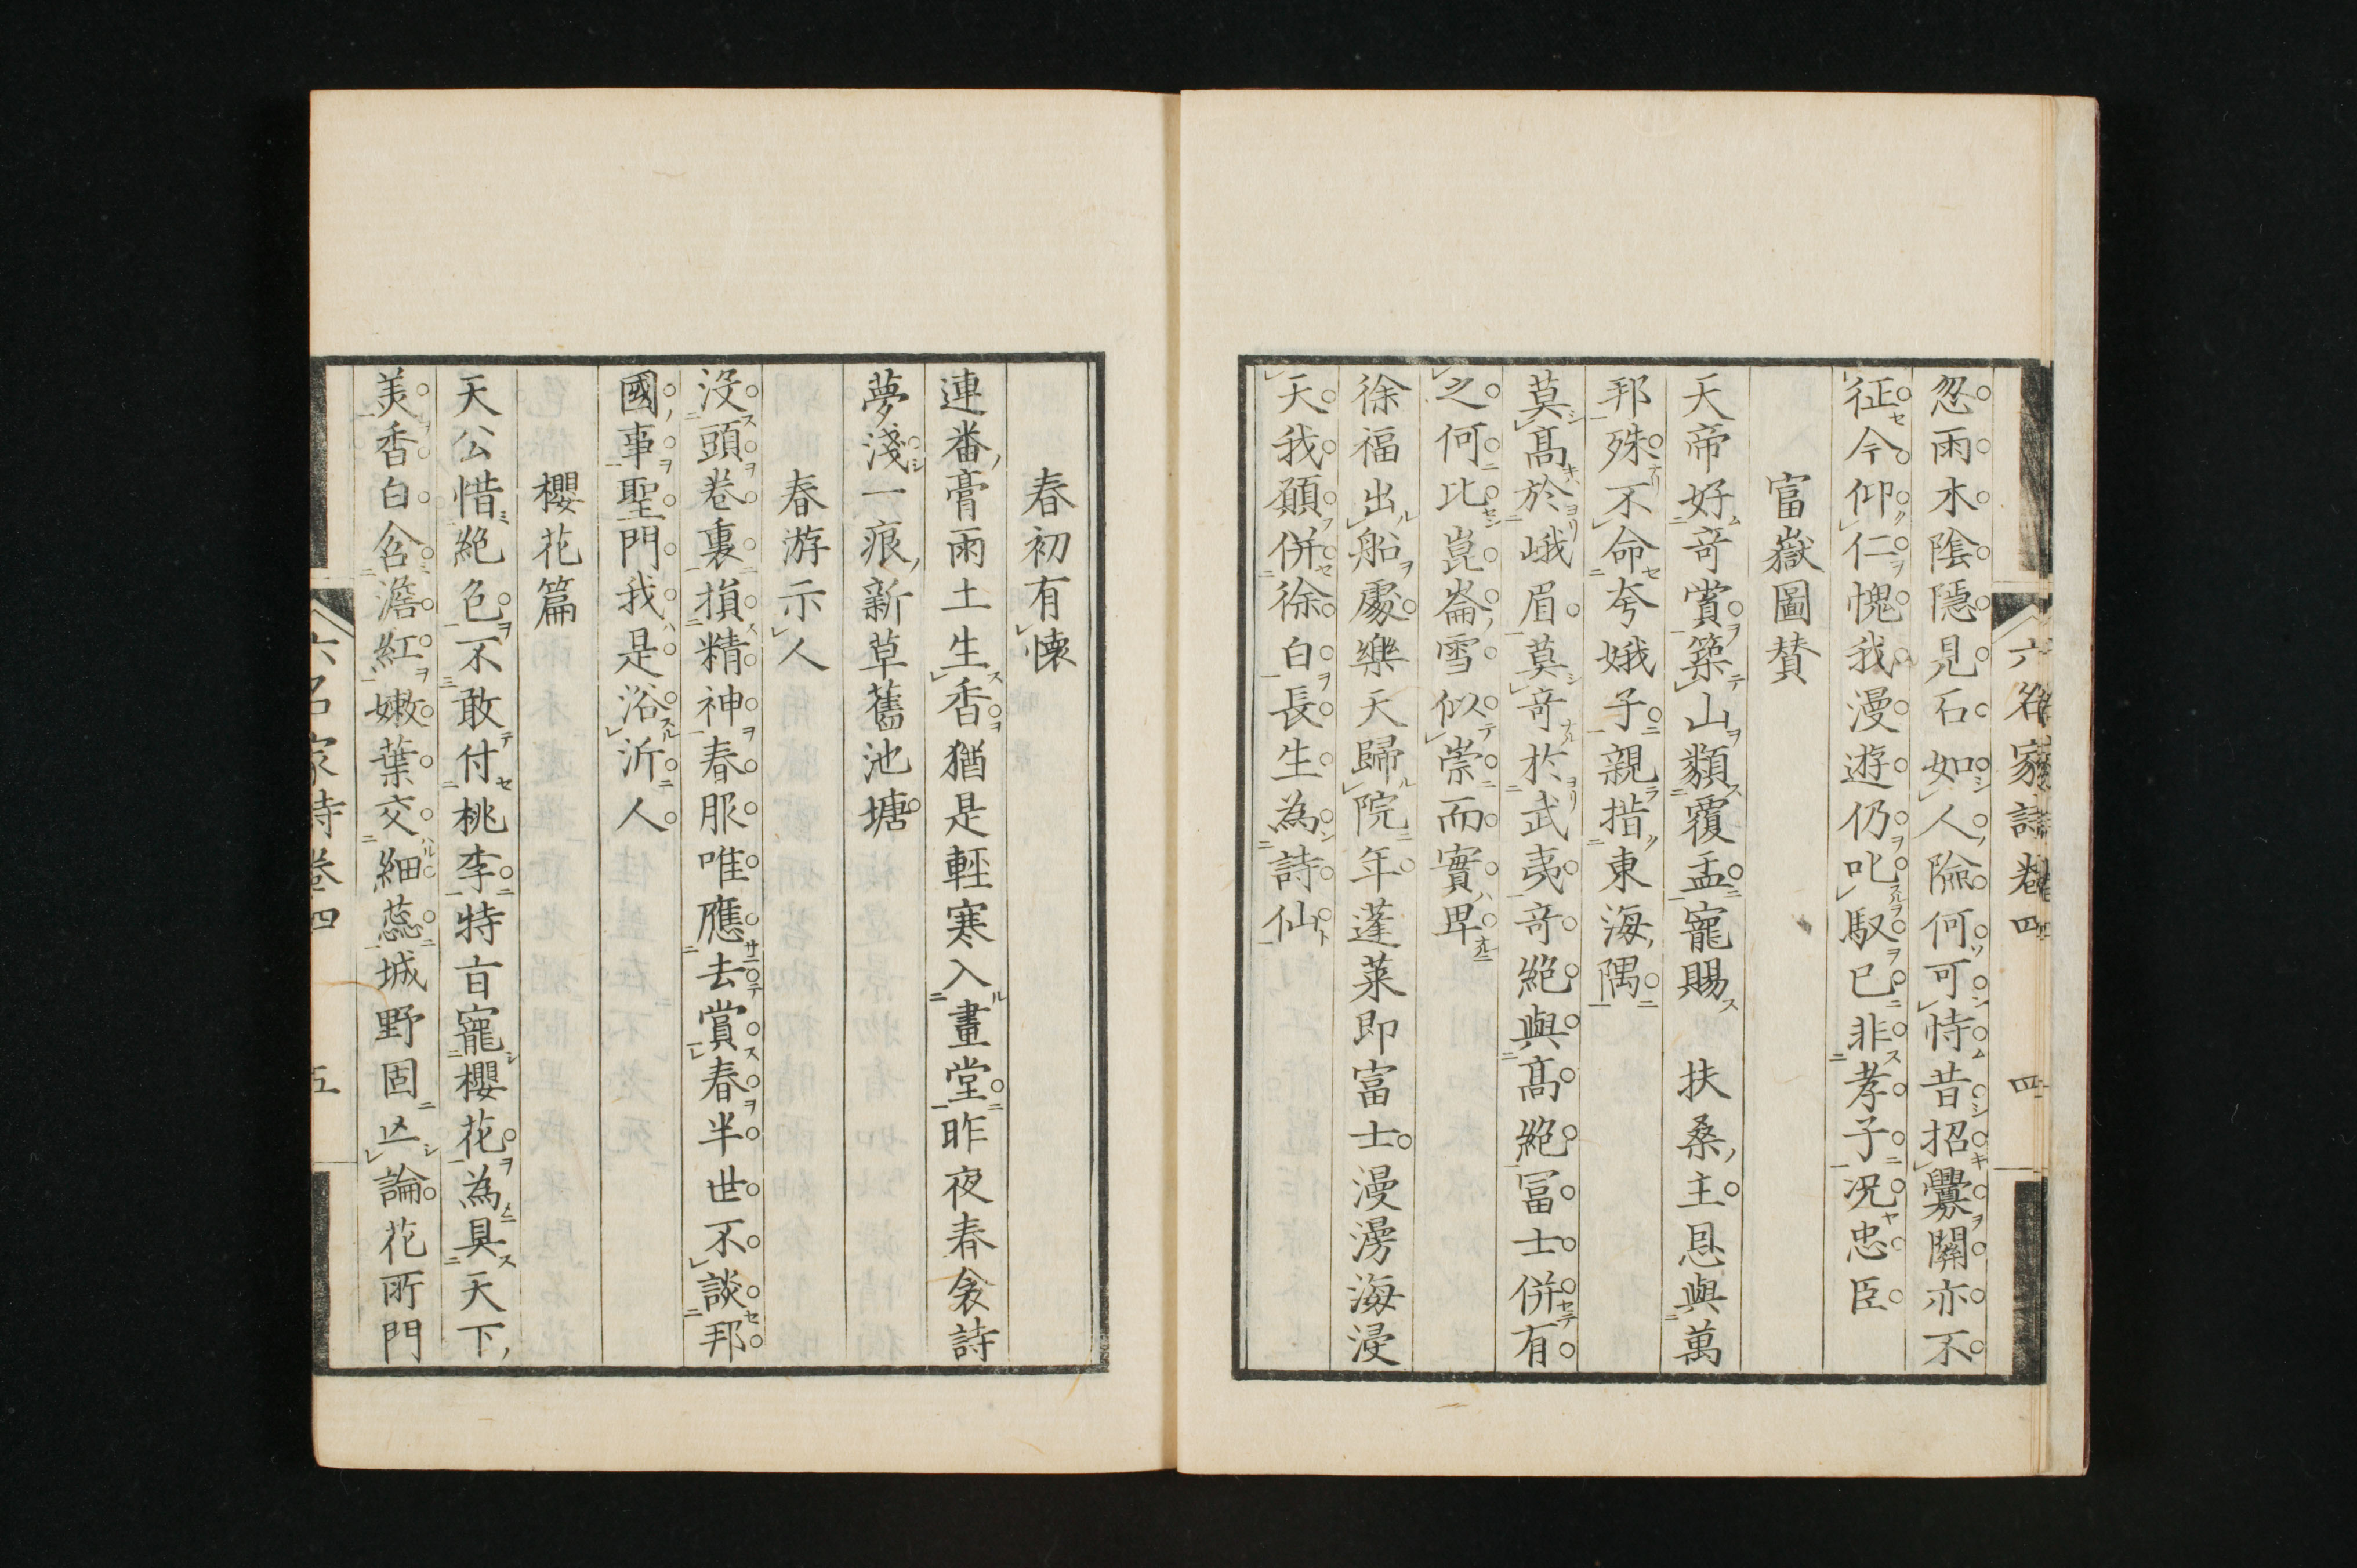 六名家詩卷四　四
忽雨木陰隱見石如人險何可恃昔招釁關亦不
征今仰仁愧我漫遊仍叱馭已非孝子況忠臣
富嶽圖贊
天帝好奇賞築山纇覆盂寵賜　扶桑主恩與萬
邦殊不命夸娥子親措東海隅
莫高於峨眉莫奇於武夷奇絕與高絕冨士併有
之何比崑崙雪似崇而實卑
徐福出船處樂天歸院年蓬萊即富士漫漫海漫
天我願併徐白長生為詩仙
春初有懷
連番膏雨土生香猶是輕寒入畫堂昨夜春衾詩
夢淺一痕新草舊池塘
春游示人
沒頭卷裏損精神春服唯應去賞春半世不談邦
國事聖門我是浴沂人
櫻花篇
天公惜絕色不敢付桃李特旨寵櫻花為具天下
美香白含澹紅嫩葉交細蕊城野固亾論花所門
六名家詩卷四　五